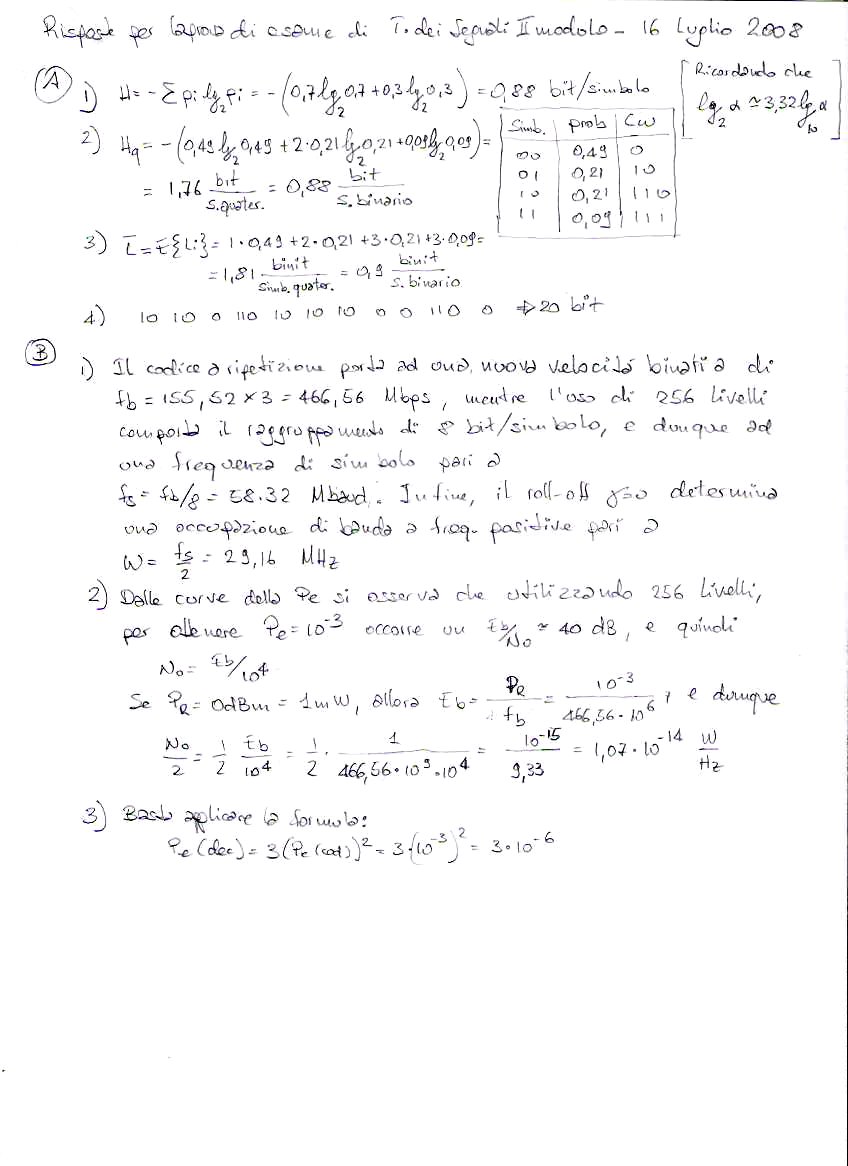 Risposte per la prova di esame di T. dei Segnali II modulo - 16 Luglio 2008
(A) 1) H = - Σ pi lg₂ pi = - (0,7 lg₂ 0,7 + 0,3 lg₂ 0,3) = 0,88 bit/simbolo
[Ricordando che
lg₂ α ≃ 3,32 lg₁₀ α]
2) Hq = - (0,49 lg₂ 0,49 + 2·0,21 lg₂ 0,21 + 0,09 lg₂ 0,09) =
= 1,76 bit/S.quater. = 0,88 bit/S.binario
Simb. prob Cw
00 0,49 0
01 0,21 10
10 0,21 110
11 0,09 111
3) L̄ = E{Li} = 1·0,49 + 2·0,21 + 3·0,21 + 3·0,09 =
= 1,81 binit/Simb.quater. = 0,9 binit/S.binario
4) 10 10 0 110 10 10 10 0 0 110 0 ⇒ 20 bit
(B) 1) Il codice a ripetizione porta ad una nuova velocità binaria di
fb = 155,52 × 3 = 466,56 Mbps, mentre l'uso di 256 livelli
comporta il raggruppamento di 8 bit/simbolo, e dunque ad
una frequenza di simbolo pari a
fs = fb/8 = 58.32 Mbaud. Infine, il roll-off γ=0 determina
una occupazione di banda a freq. positive pari a
W = fs/2 = 29,16 MHz
2) Dalle curve della Pe si osserva che utilizzando 256 livelli,
per ottenere Pe = 10⁻³ occorre un Eb/No ≃ 40 dB, e quindi
No = Eb/10⁴
Se PR = 0dBm = 1mW, allora Eb = PR/fb = 10⁻³/466,56·10⁶, e dunque
No/2 = 1/2 Eb/10⁴ = 1/2 · 1/466,56·10⁹·10⁴ = 10⁻¹⁵/9,33 = 1,07·10⁻¹⁴ W/Hz
3) Basta applicare la formula:
Pe (dec) = 3 (Pe (cod))² = 3·(10⁻³)² = 3·10⁻⁶